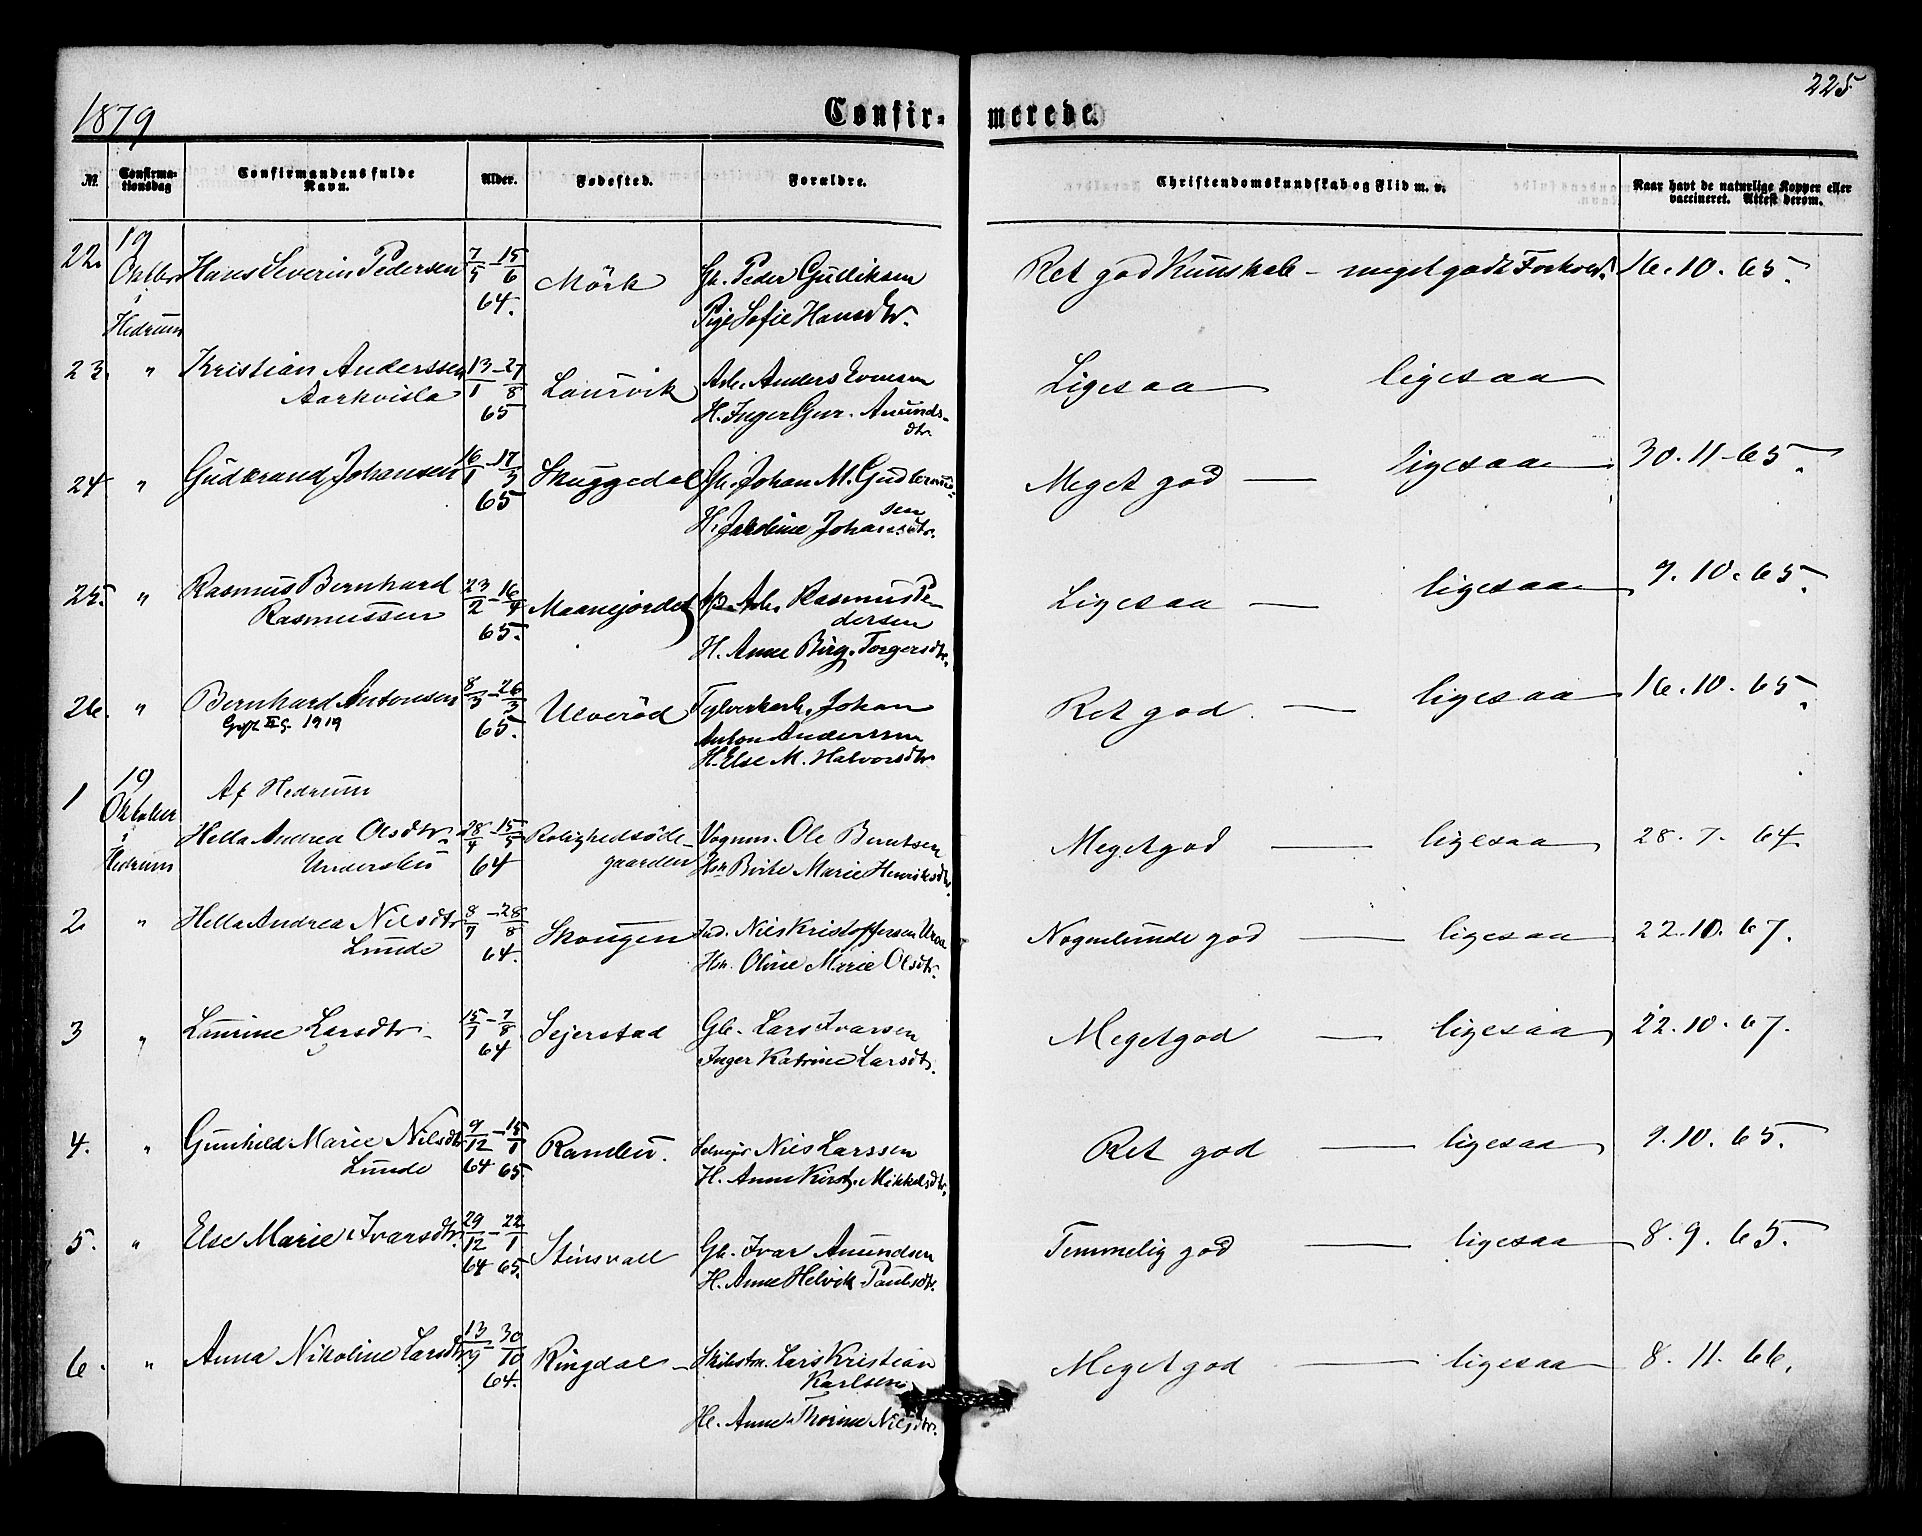 1879
Confir-
merede.
225
№
Confirma-
tionsdag
Confirmandens fulde
Navn.
Alder.
Fødested.
Forældre.
Christendomskundskab og Flid m. v.
Naar havt de naturlige Kopper eller
vaccineret. Attest derom.
22. 19 Oktbr i Hedrum Hans Severin Pedersen 7/5 - 15/6 64. Mörk Gb. Peder Gulliksen
Pige Sofie Hansdtr.
Ret god Kunskab - meget godt Forhold. 16.10.65.
23. " Kristian Anderssen
Aarhvisla 13/1 - 27/8 65 Laurvik Arb. Anders Evensen
H. Inger Gur. Amunds-
dtr.
Ligesaa ligesaa
24 " Gudbrand Johansen 16/1 - 17/3 65 Skuggedal Gb. Johan M. Gudbrand-
sen
H. Jakobine Johansdtr.
Meget god — ligesaa 30.11-65.
25. " Rasmus Bernhard
Rasmussen 23/2 - 16/4 65. Maanejordet Arb. Rasmus Pe-
dersen
H. Anne Birg. Torgersdtr.
Ligesaa — ligesaa 9.10.65.
26. " Bernhard Antonsen
1919
8/3 - 26/3 65. Ulveröd Johan
Anton Anderssen
H. Else M. Halvorsdtr.
Ret god. — ligesaa 16.10.65.
1 19 Oktober i Hedrum
Af Hedrum
Hella Andrea Olsdtr.
Undersbo 28/4 - 15/5 64 Rolighedsöde-
gaarden Vognm. Ole Berntsen
Hsn Birte Marie Henriksdtr.
Meget god — ligesaa 28.7.64.
2 " Hella Andrea Nilsdtr
Lunde 8/7 - 28/8 64. Skougen Ind. Nils Kristoffersen
Hsn. Oline Marie Olsdtr.
Nogenlunde god — ligesaa 22.10.67.
3 " Laurine Larsdtr. 15/7 - 7/8 64 Sejerstad Gb. Lars Ivarsen
Inger Katrine Larsdtr.
Meget god — ligesaa 22.10.67.
4. " Gunhild Marie Nilsdtr
Lunde 9/12 - 15/1 64 65. Ramberi. Selvejer Nils Larssen
H. Anne Kirst. Mikkelsdtr.
Ret god — ligesaa 9.10.65.
5. " Else Marie Ivarsdtr. 29/12 - 22/1 64 65. Stinsvall Gb. Ivar Amundsen
H. Anne Helvik Paulsdtr.
Temmelig god — ligesaa 8.9.65.
6. " Anna Nikoline Larsdtr 13/9 - 30/10 64. Ringdal - Skibstm. Lars Kristian
Karlsen
H. Anne Thorine Nilsdtr.
Meget god — ligesaa 8.11.66.